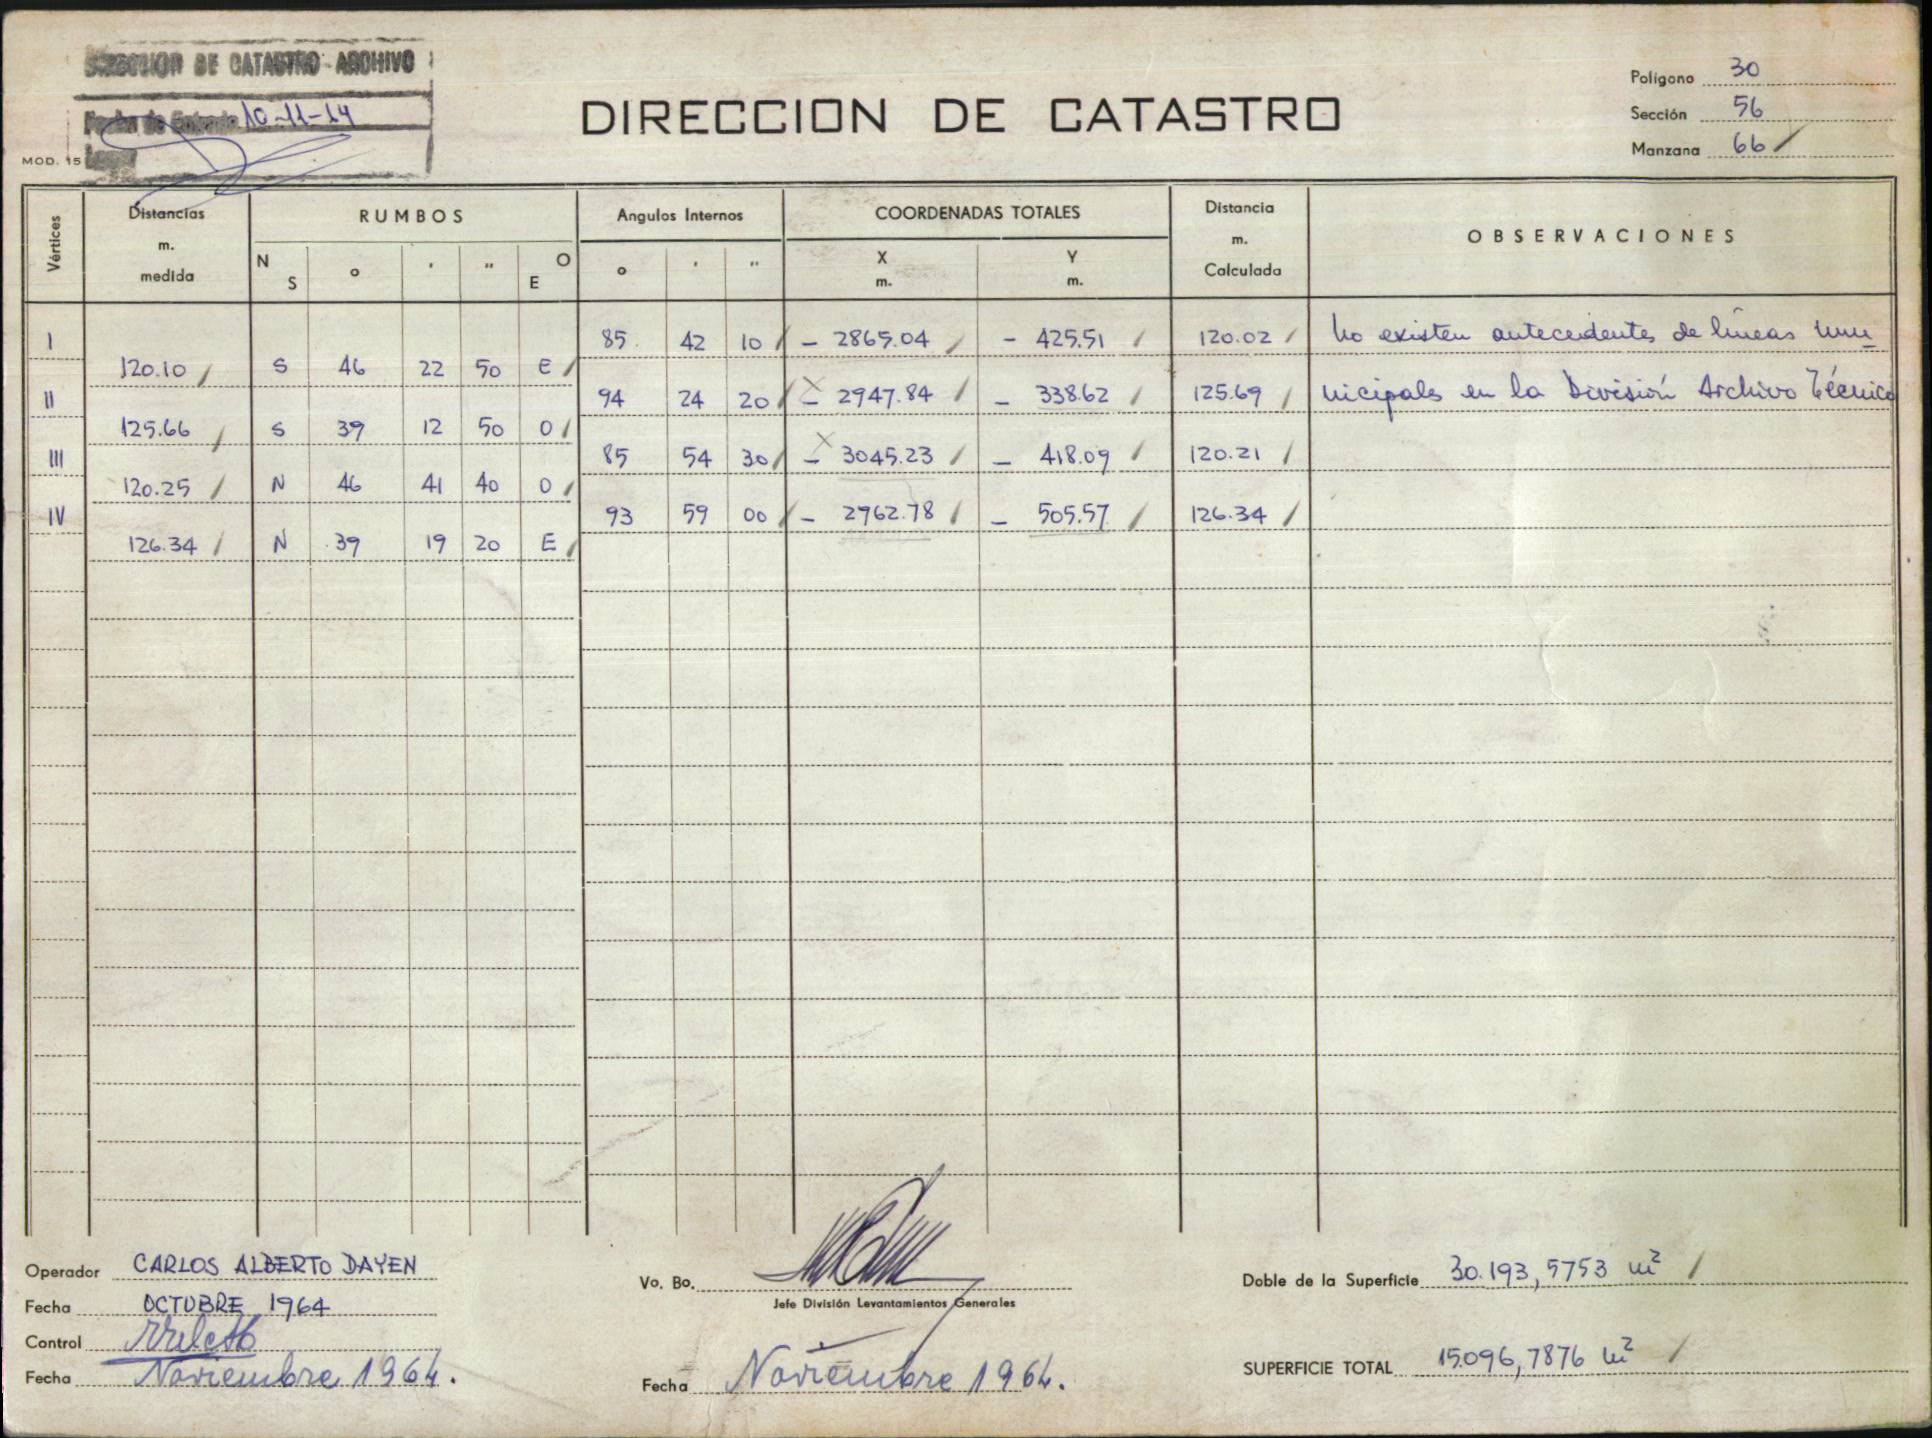 DIRECCION DE CATASTRO - ARCHIVO
Fecha de Entrada 10-11-64
Legajo
MOD. 15
DIRECCION DE CATASTRO
Polígono 30
Sección 56
Manzana 66
Vértices
Distancias m. medida
RUMBOS
N S o ' " O E
Angulos Internos
o ' "
COORDENADAS TOTALES
X m. Y m.
Distancia m. Calculada
OBSERVACIONES
I 85 42 10 - 2865.04 - 425.51 120.02 No existen antecedentes de líneas mu_
120.10 S 46 22 50 E
II 94 24 20 - 2947.84 - 338.62 125.69 nicipales en la División Archivo Técnico
125.66 S 39 12 50 O
III 85 54 30 - 3045.23 - 418.09 120.21
120.25 N 46 41 40 O
IV 93 59 00 - 2962.78 - 505.57 126.34
126.34 N 39 19 20 E
Operador CARLOS ALBERTO DAYEN
Fecha OCTUBRE 1964
Control
Fecha Noviembre 1964.
Vo. Bo.
Jefe División Levantamientos Generales
Fecha Noviembre 1964.
Doble de la Superficie 30.193,5753 m²
SUPERFICIE TOTAL 15.096,7876 m²